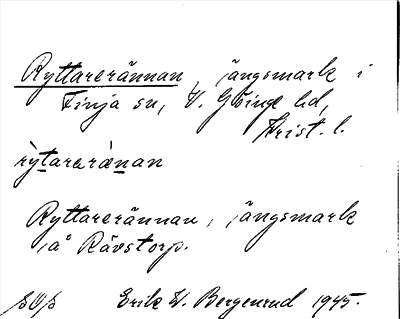 Ryttarerännan, ängsmark i
Finja sn, V. Göinge hd,
Krist. l.
rỳtareränan
Ryttarerännan, ängsmark
på Rävstorp.
Erik W. Bergenrud 1945.